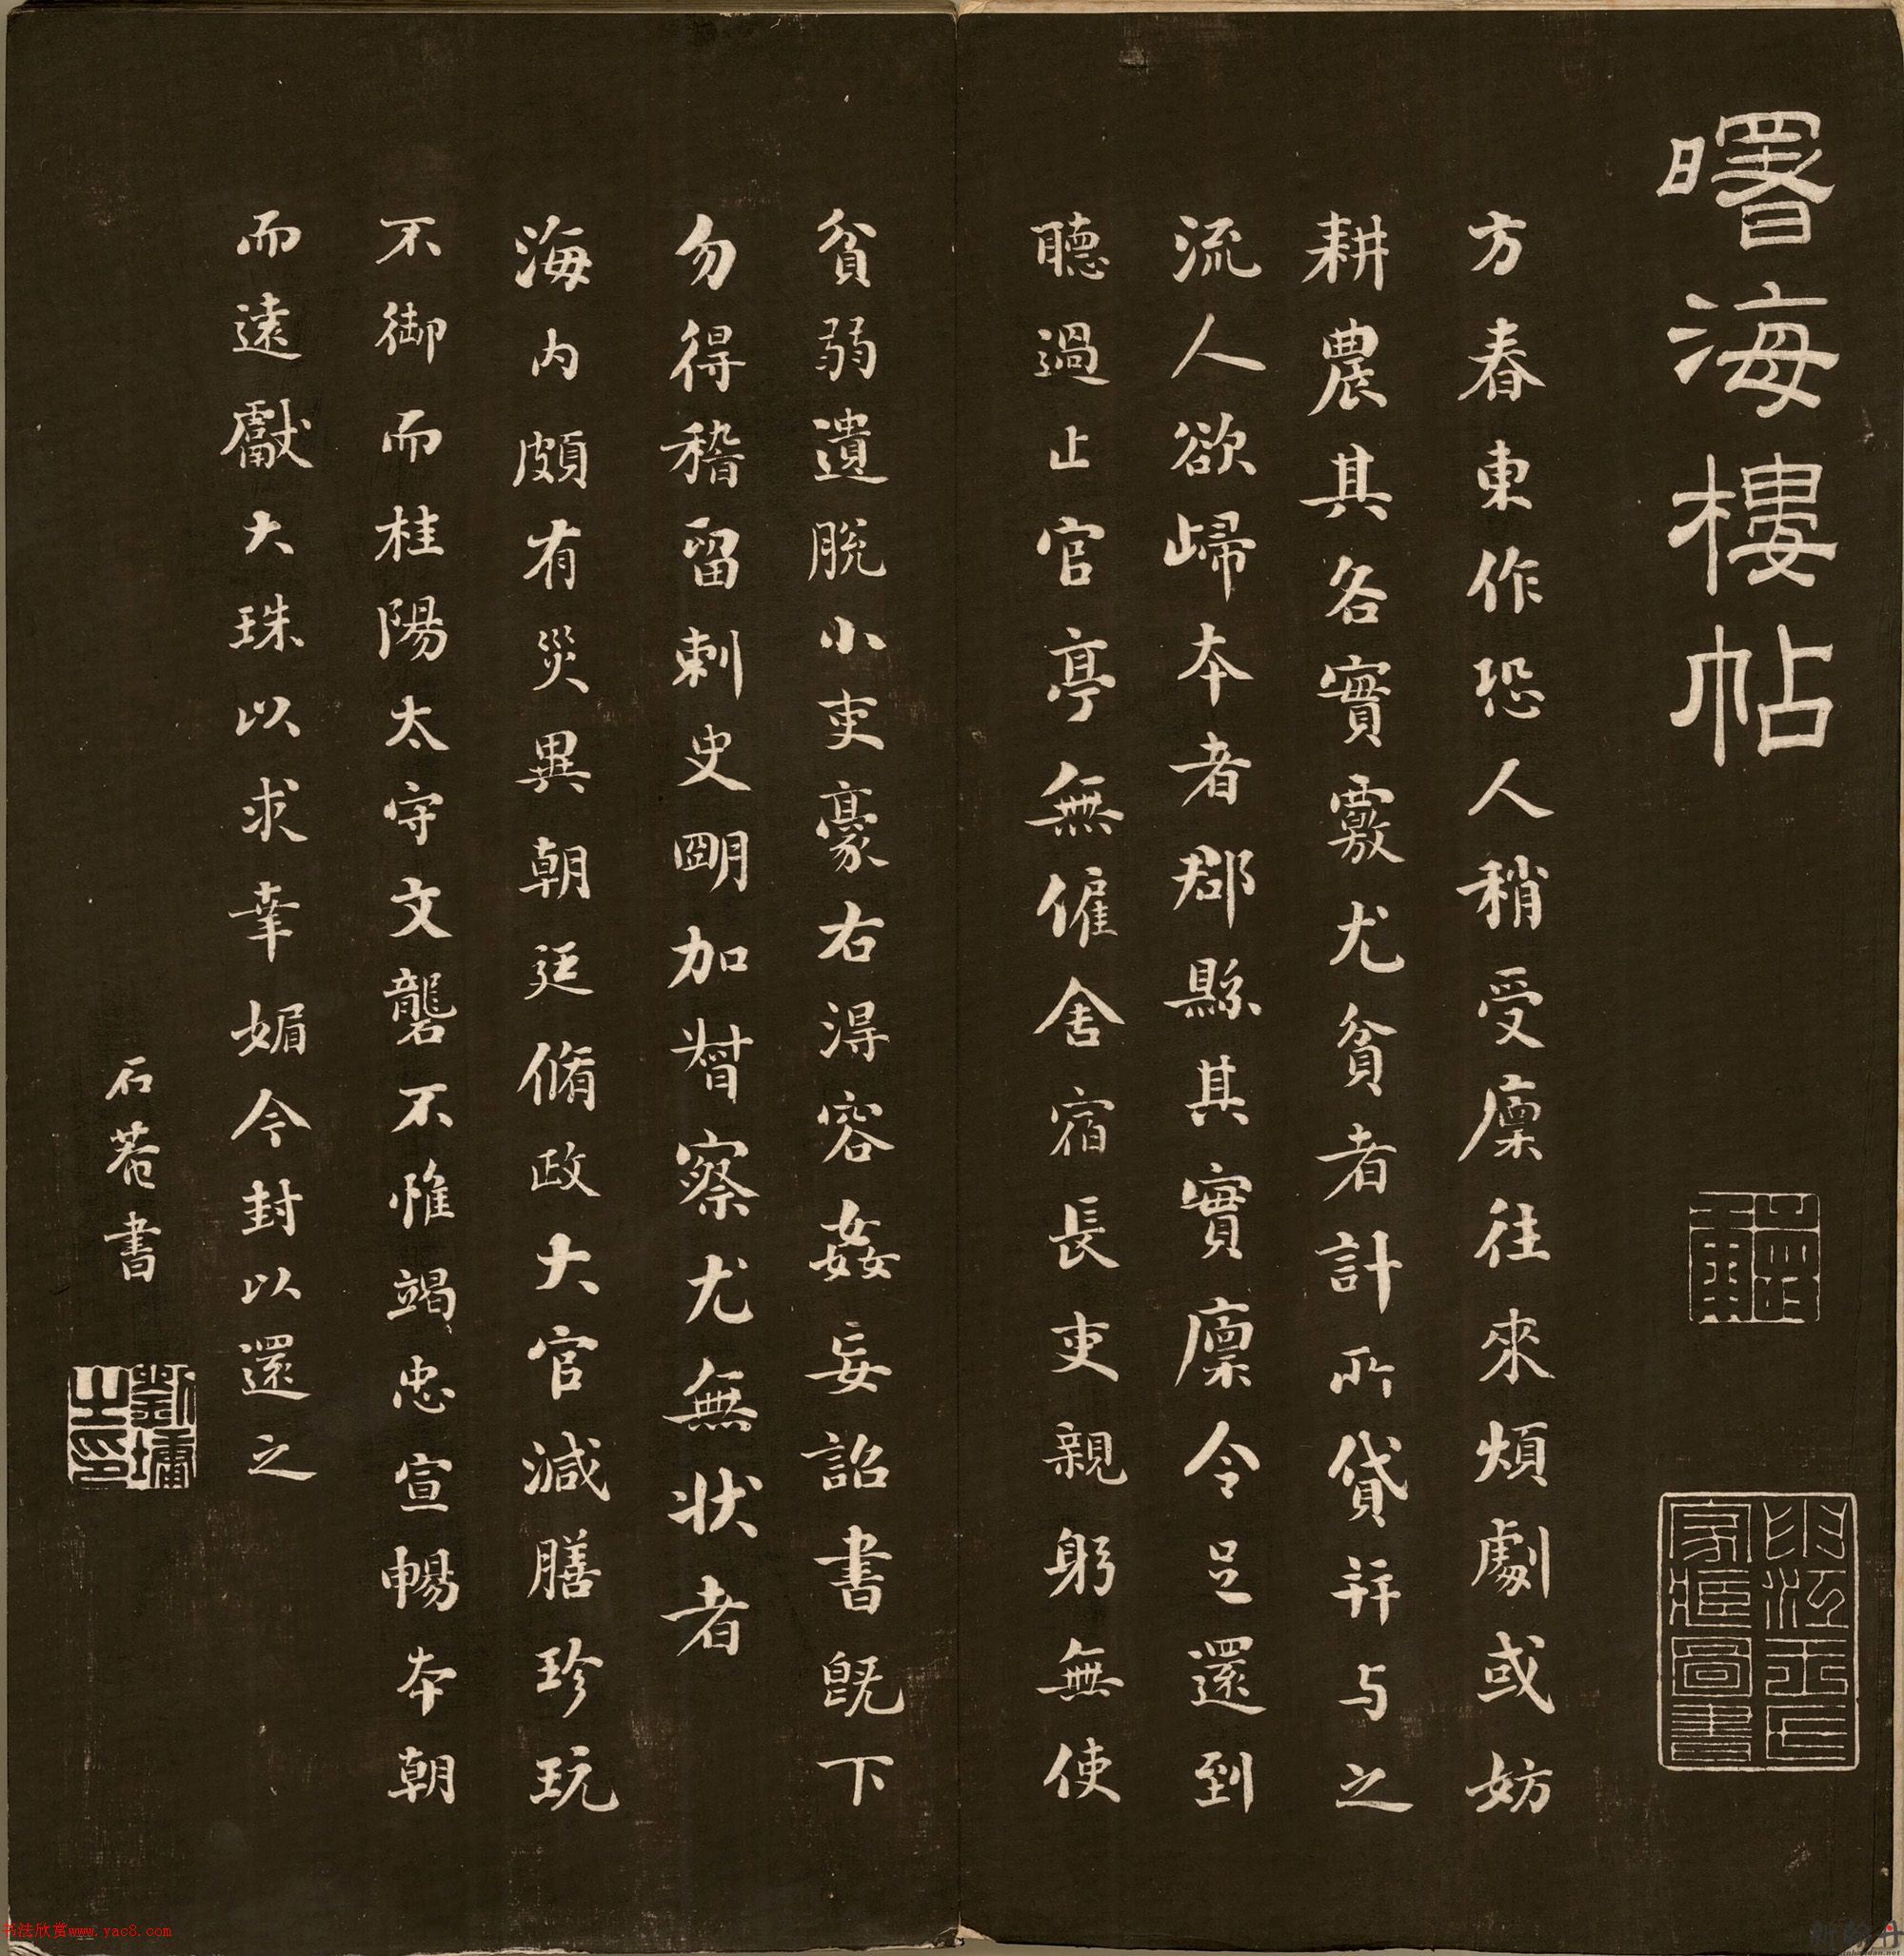 曙海樓帖
方春東作恐人稍受廩往來煩劇或妨
耕農其各實覈尤貧者計所貸并与之
流人欲歸本者郡縣其實廩令足還到
聽過止官亭無雇舍宿長吏親躬無使
貧弱遺脫小吏豪右得容姦妄詔書既下
勿得稽留刺史明加督察尤無狀者
海内頗有災異朝廷脩政大官減膳珍玩
不御而桂陽太守文礱不惟竭忠宣暢本朝
而遠獻大珠以求幸媚今封以還之
石菴書
劉墉之印
书法欣赏www.yac8.com